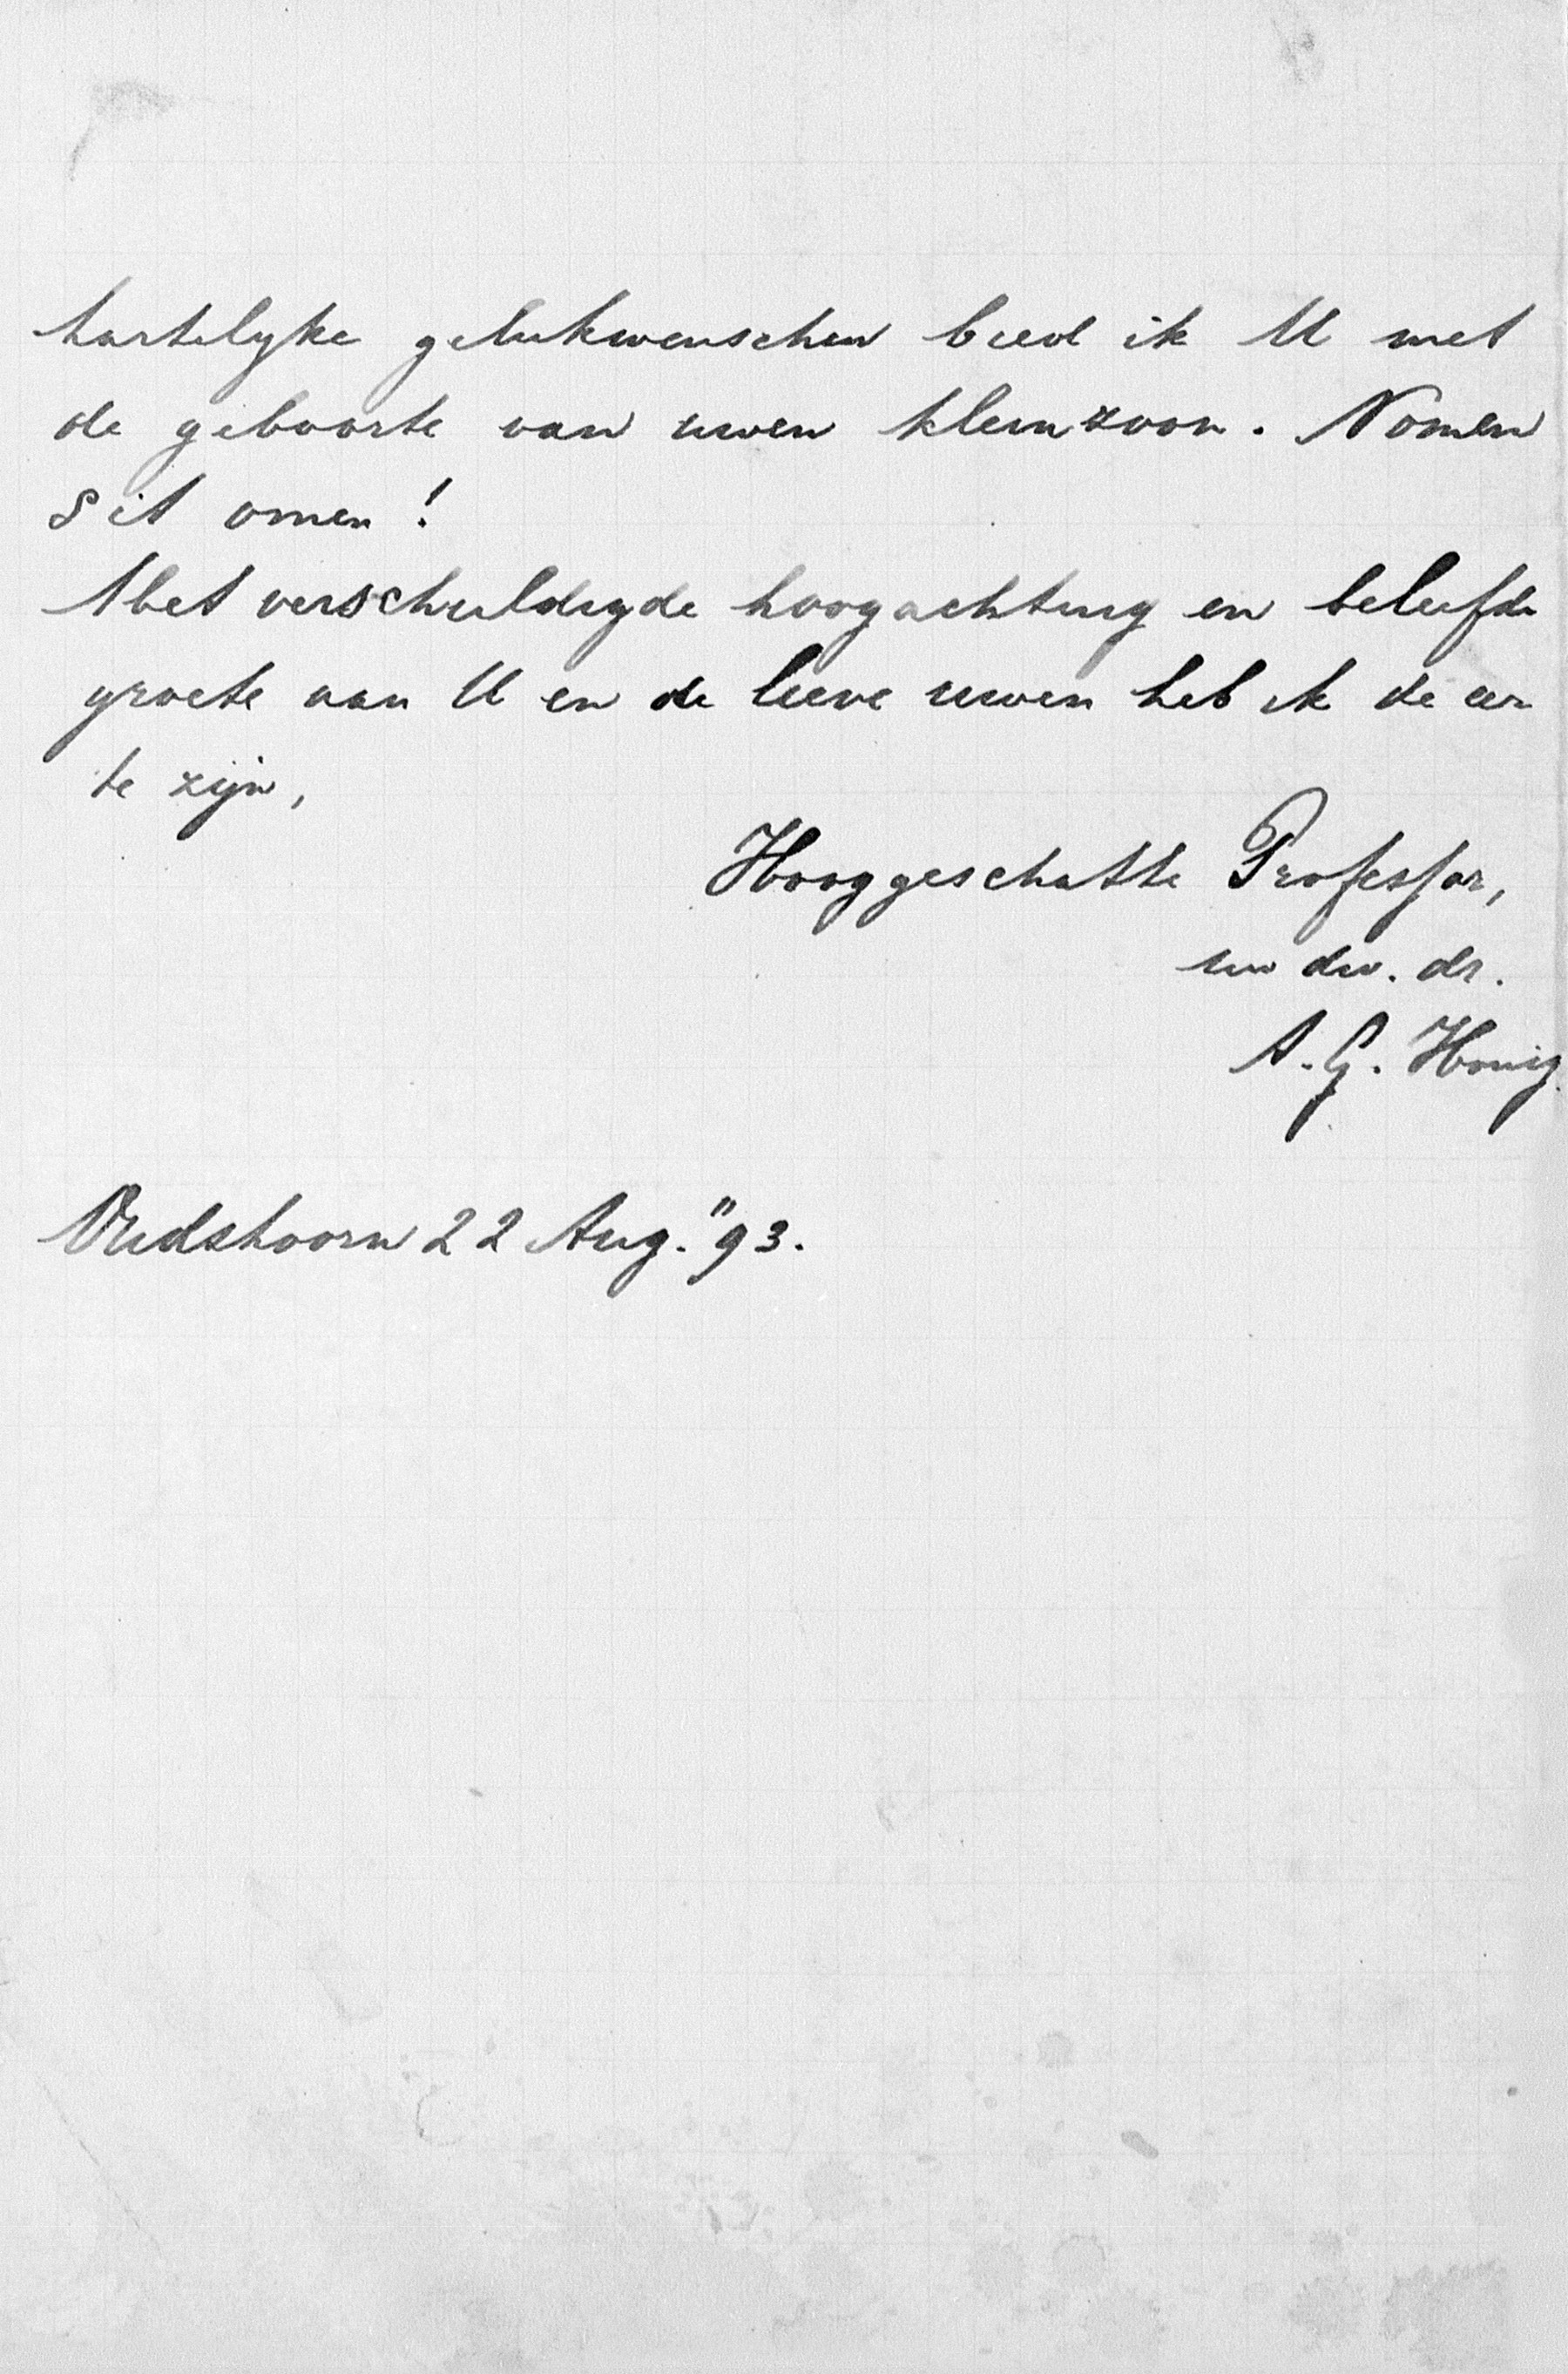 hartelyke gelukwenschen bied ik U met
de geboorte van uwen kleinzoon. Nomen
sit omen!
Met verschuldigde hoogachting en beleefde
groete aan U en de lieve uwen heb ik de eer
te zijn,
Hooggeschatte Professor,
uw dw. dr.
A. G. Honig
Oudshoorn 22 Aug. "93.